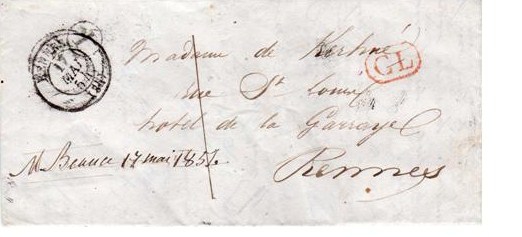 Madame de Kerhné
rue St Louis
hotel de la Garraye
Rennes
CL
17
MAI
M Beauce 17 mai 1852